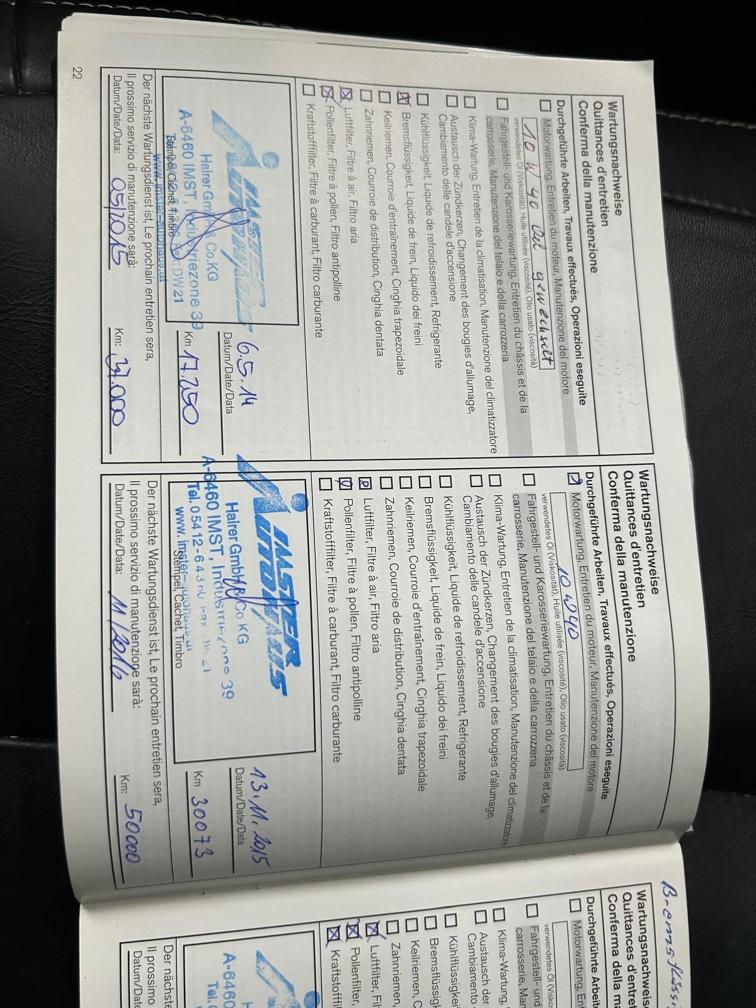 Wartungsnachweise
Quittances d'entretien
Conferma della manutenzione
Durchgeführte Arbeiten, Travaux effectués, Operazioni eseguite
Motorwartung, Entretien du moteur, Manutenzione del motore
10 W 40 Oel gewechselt
verwendetes Öl (Viskosität), Huile utilisée (viscosité), Olio usato (viscosità)
Fahrgestell- und Karosseriewartung, Entretien du châssis et de la
carrosserie, Manutenzione del telaio e della carrozzeria
Klima-Wartung, Entretien de la climatisation, Manutenzione del climatizzatore
Austausch der Zündkerzen, Changement des bougies d'allumage,
Cambiamento delle candele d'accensione
Kühlflüssigkeit, Liquide de refroidissement, Refrigerante
Bremsflüssigkeit, Liquide de frein, Liquido dei freini
Keilriemen, Courroie d'entraînement, Cinghia trapezoidale
Zahnriemen, Courroie de distribution, Cinghia dentata
Luftfilter, Filtre à air, Filtro aria
Pollenfilter, Filtre à pollen, Filtro antipolline
Kraftstofffilter, Filtre à carburant, Filtro carburante
IMSTER
AUTOHAUS
Hairer GmbH & Co KG
A-6460 IMST, Industriezone 39
www.imster-autohaus.at
Stempel, Cachet, Timbro
6.5.14
Datum/Date/Data
Km 17250
Der nächste Wartungsdienst ist, Le prochain entretien sera,
Il prossimo servizio di manutenzione sarà:
Datum/Date/Data: 05/2015 Km: 37.000
22
Wartungsnachweise
Quittances d'entretien
Conferma della manutenzione
Durchgeführte Arbeiten, Travaux effectués, Operazioni eseguite
Motorwartung, Entretien du moteur, Manutenzione del motore
10W40
verwendetes Öl (Viskosität), Huile utilisée (viscosité), Olio usato (viscosità)
Fahrgestell- und Karosseriewartung, Entretien du châssis et de la
carrosserie, Manutenzione del telaio e della carrozzeria
Klima-Wartung, Entretien de la climatisation, Manutenzione del climatizzatore
Austausch der Zündkerzen, Changement des bougies d'allumage,
Cambiamento delle candele d'accensione
Kühlflüssigkeit, Liquide de refroidissement, Refrigerante
Bremsflüssigkeit, Liquide de frein, Liquido dei freini
Keilriemen, Courroie d'entraînement, Cinghia trapezoidale
Zahnriemen, Courroie de distribution, Cinghia dentata
Luftfilter, Filtre à air, Filtro aria
Pollenfilter, Filtre à pollen, Filtro antipolline
Kraftstofffilter, Filtre à carburant, Filtro carburante
IMSTER
AUTOHAUS
Hairer GmbH & Co KG
A-6460 IMST, Industriezone 39
Tel. 05412-643
Stempel, Cachet, Timbro
13.11.2015
Datum/Date/Data
Km 30073
Der nächste Wartungsdienst ist, Le prochain entretien sera,
Il prossimo servizio di manutenzione sarà:
Datum/Date/Data: 11/2016 Km: 50000
Wartungsnachweise
Quittances d'entretien
Conferma della m
Durchgeführte Arbeite
Motorwartung, En
verwendetes Öl (Viskos
Fahrgestell- und
carrosserie, Man
Klima-Wartung,
Austausch der
Cambiamento
Kühlflüssigkei
Bremsflüssig
Keilriemen, C
Zahnriemen,
Luftfilter, Fil
Pollenfilter,
Kraftstofff
A-6460
Der nächste
Il prossimo
Datum/Dat